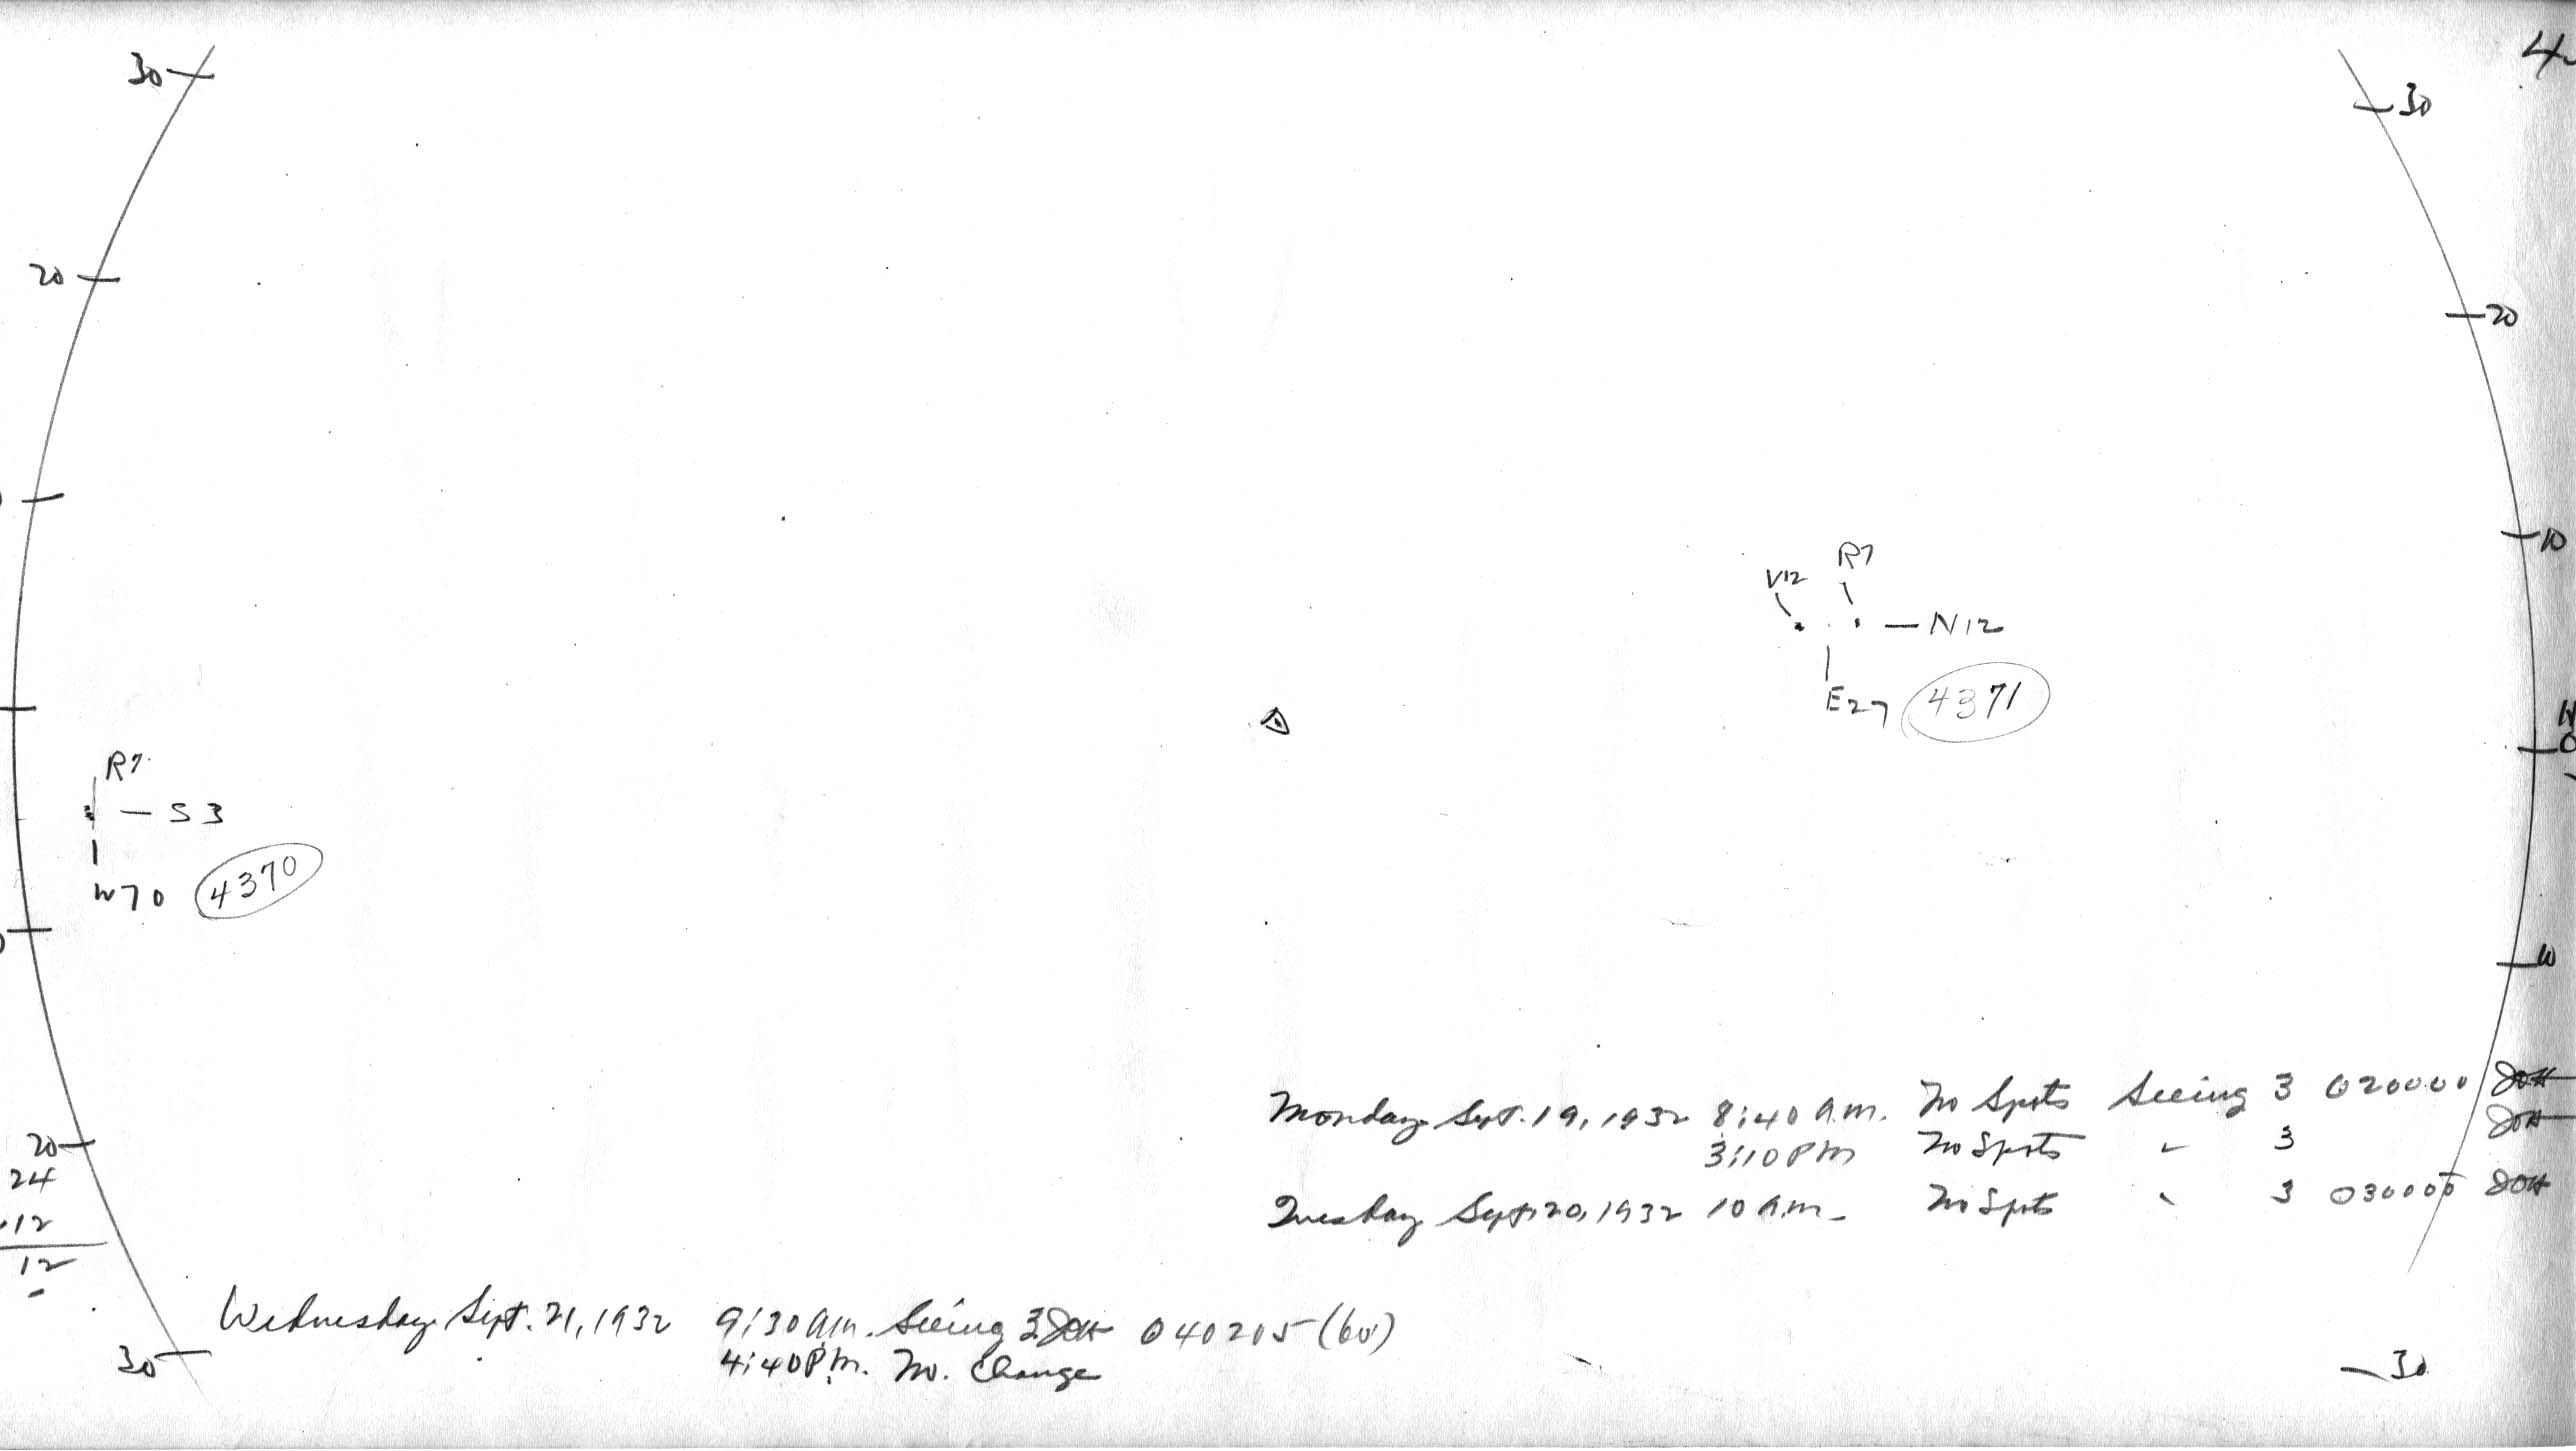 30
4
30
20
20
10
R7
V12
N12
E27
4371
0
R7
S3
W70
4370
10
Monday Sept. 19, 1932 8:40 A.M. No Spots Seeing 3 020000 JOH
3:10 PM No Spots " 3 JOH
Tuesday Sept. 20, 1932 10 A.M. No Spots " 3 030000 JOH
20
24
12
12
Wednesday Sept. 21, 1932 9:30 A.M. Seeing 3 JOH 040205 (60)
4:40 P.M. No. Change
30
30